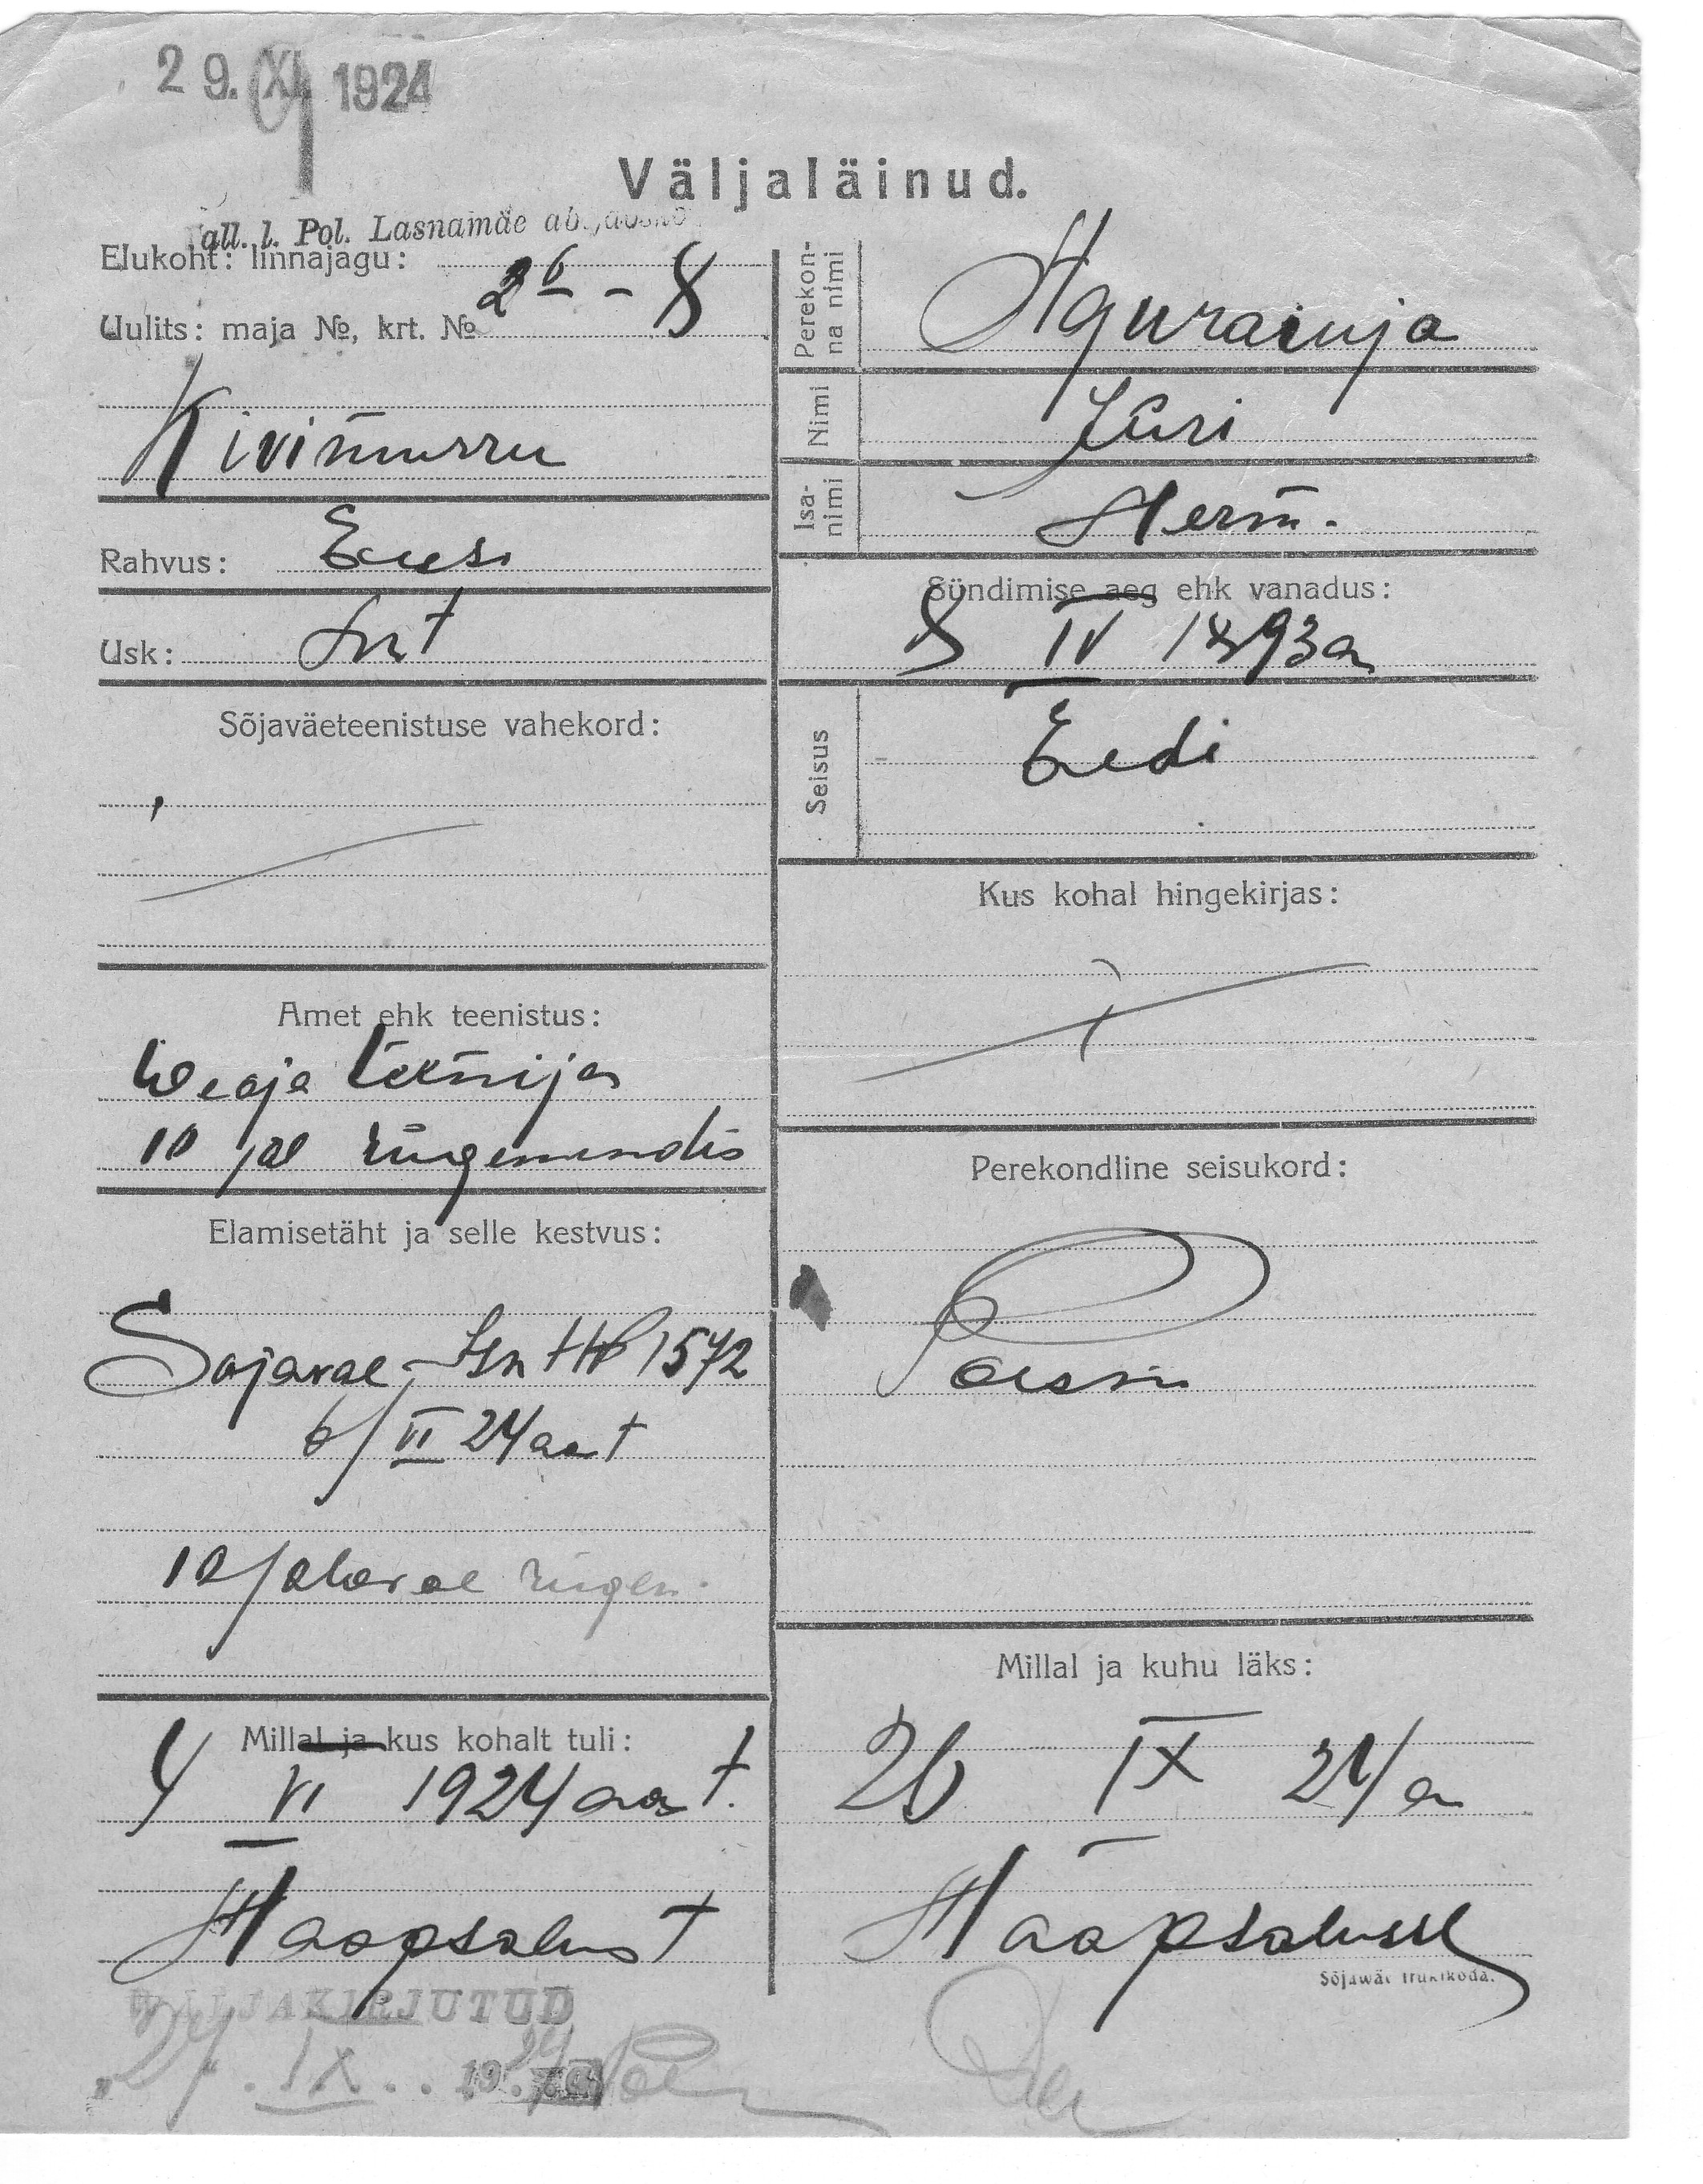 29. XI 1924
Väljaläinud.
Tall. l. Pol. Lasnamäe ab. jaosk
Elukoht: linnajagu:
Uulits: maja №, krt. № 26 - 8
Kivimurru
Rahvus: Eesti
Usk: Lut
Sõjaväeteenistuse vahekord:
Amet ehk teenistus:
10 jal rügemendis
Elamisetäht ja selle kestvus:
Sojavae 1572
6/VI 24 aast
10 jalavae rügem.
Millal ja kus kohalt tuli:
4 VI 1924 aast.
Haapsalust
WÄLJAKIRJUTUD
27. IX. 1924
Perekon-
na nimi
Aguraiuja
Nimi Jüri
Isa-
nimi
Herm.
Sündimise aeg ehk vanadus:
8 IV 1893 a
Seisus Eesti
Kus kohal hingekirjas:
Perekondline seisukord:
Poissm
Millal ja kuhu läks:
26 IX 24 a
Haapsalusse
Sõjawäe trükikoda.